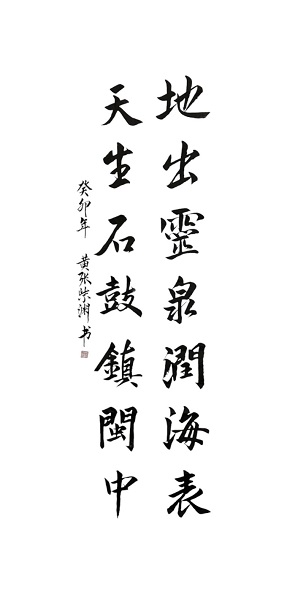 地出靈泉潤海表
天生石鼓鎮閩中
癸卯年 黄张 渊书